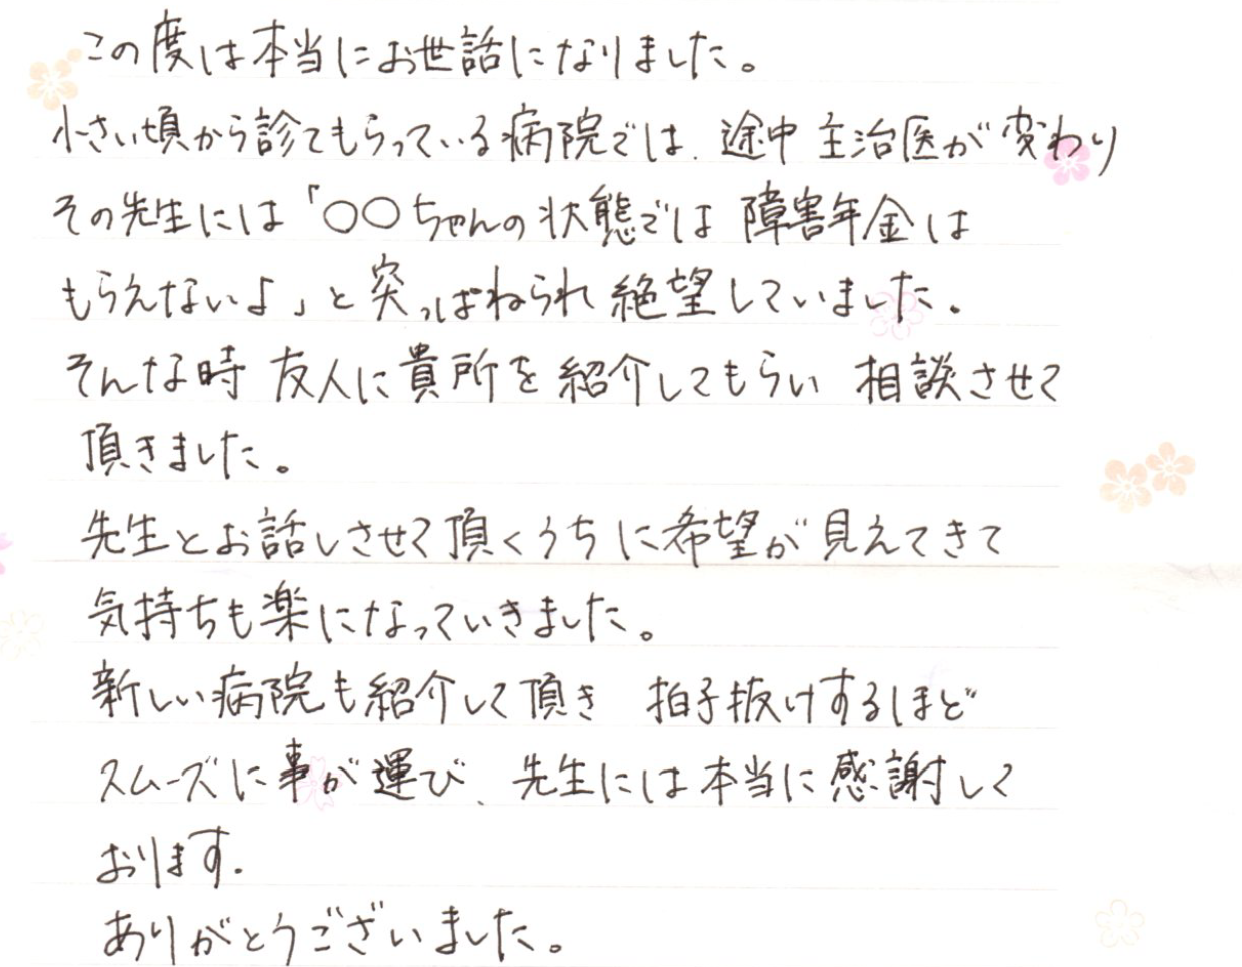 この度は本当にお世話になりました。
小さい頃から診てもらっている病院では、途中 主治医が変わり
その先生には「〇〇ちゃんの状態では 障害年金は
もらえないよ」と突っぱねられ 絶望していました。
そんな時 友人に貴所を紹介してもらい 相談させて
頂きました。
先生とお話しさせて頂くうちに希望が見えてきて
気持ちも楽になっていきました。
新しい病院も紹介して頂き 拍子抜けするほど
スムーズに事が運び、先生には本当に感謝して
おります。
ありがとうございました。